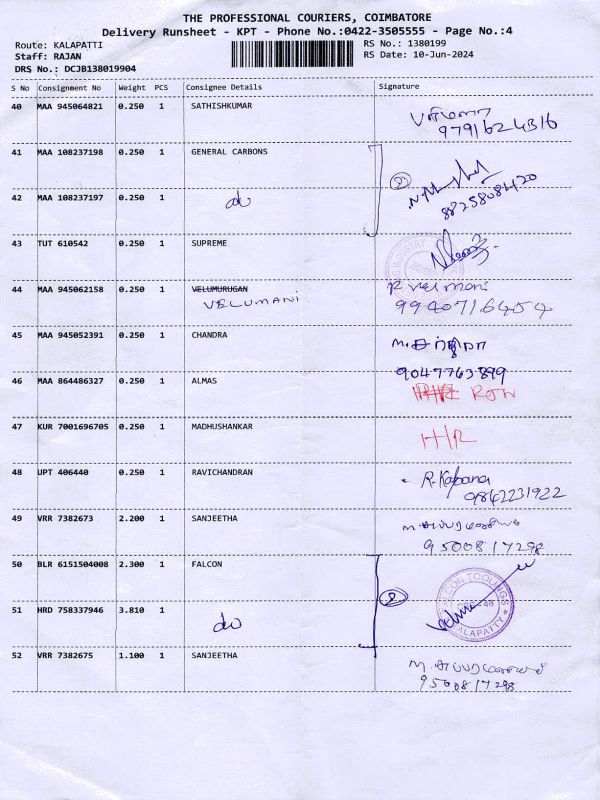 THE PROFESSIONAL COURIERS, COIMBATORE
Delivery Runsheet - KPT - Phone No.:0422-3505555 - Page No.:4
Route: KALAPATTI
RS No.: 1380199
Staff: RAJAN
RS Date: 10-Jun-2024
DRS No.: DCJB138019904
S No Consignment No Weight PCS Consignee Details Signature
40 MAA 945064821 0.250 1 SATHISHKUMAR
9791624316
41 MAA 108237198 0.250 1 GENERAL CARBONS
2
42 MAA 108237197 0.250 1 do
8825808420
43 TUT 610542 0.250 1 SUPREME
INDUSTRY
44 MAA 945062158 0.250 1 VELUMURUGAN
VELUMANI
R velmani
9940716454
45 MAA 945052391 0.250 1 CHANDRA
9047763899
46 MAA 864486327 0.250 1 ALMAS
RTN
47 KUR 7001696705 0.250 1 MADHUSHANKAR
H/R
48 UPT 406440 0.250 1 RAVICHANDRAN
R. Kalpana
9842231922
49 VRR 7382673 2.200 1 SANJEETHA
9500817298
50 BLR 6151504008 2.300 1 FALCON
2
CON TOOLINGS
51 HRD 758337946 3.810 1 do
ALAPATTY
52 VRR 7382675 1.100 1 SANJEETHA
9500817298